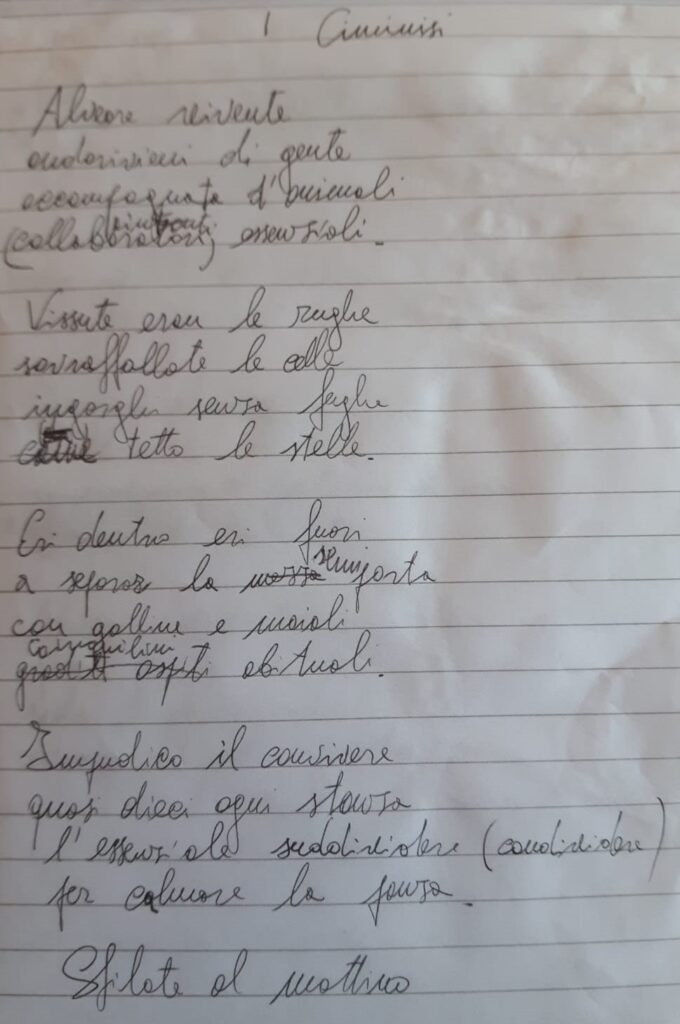 1 Ciminisi
Alveare vivente
andarivieni di gente
accompagnata d'animali
(collaboratori) essenziali.
Vissute eran le rughe
sovraffollate le celle
ingorghi senza fughe
tetto le stelle.
Eri dentro eri fuori
a separar la mezza semiporta
con galline e maiali
conquilini
graditi ospiti abituali.
Impudico il convivere
quasi dieci ogni stanza
l'essenziale suddividere (condividere)
per calmare la panza.
Sfilate al mattino